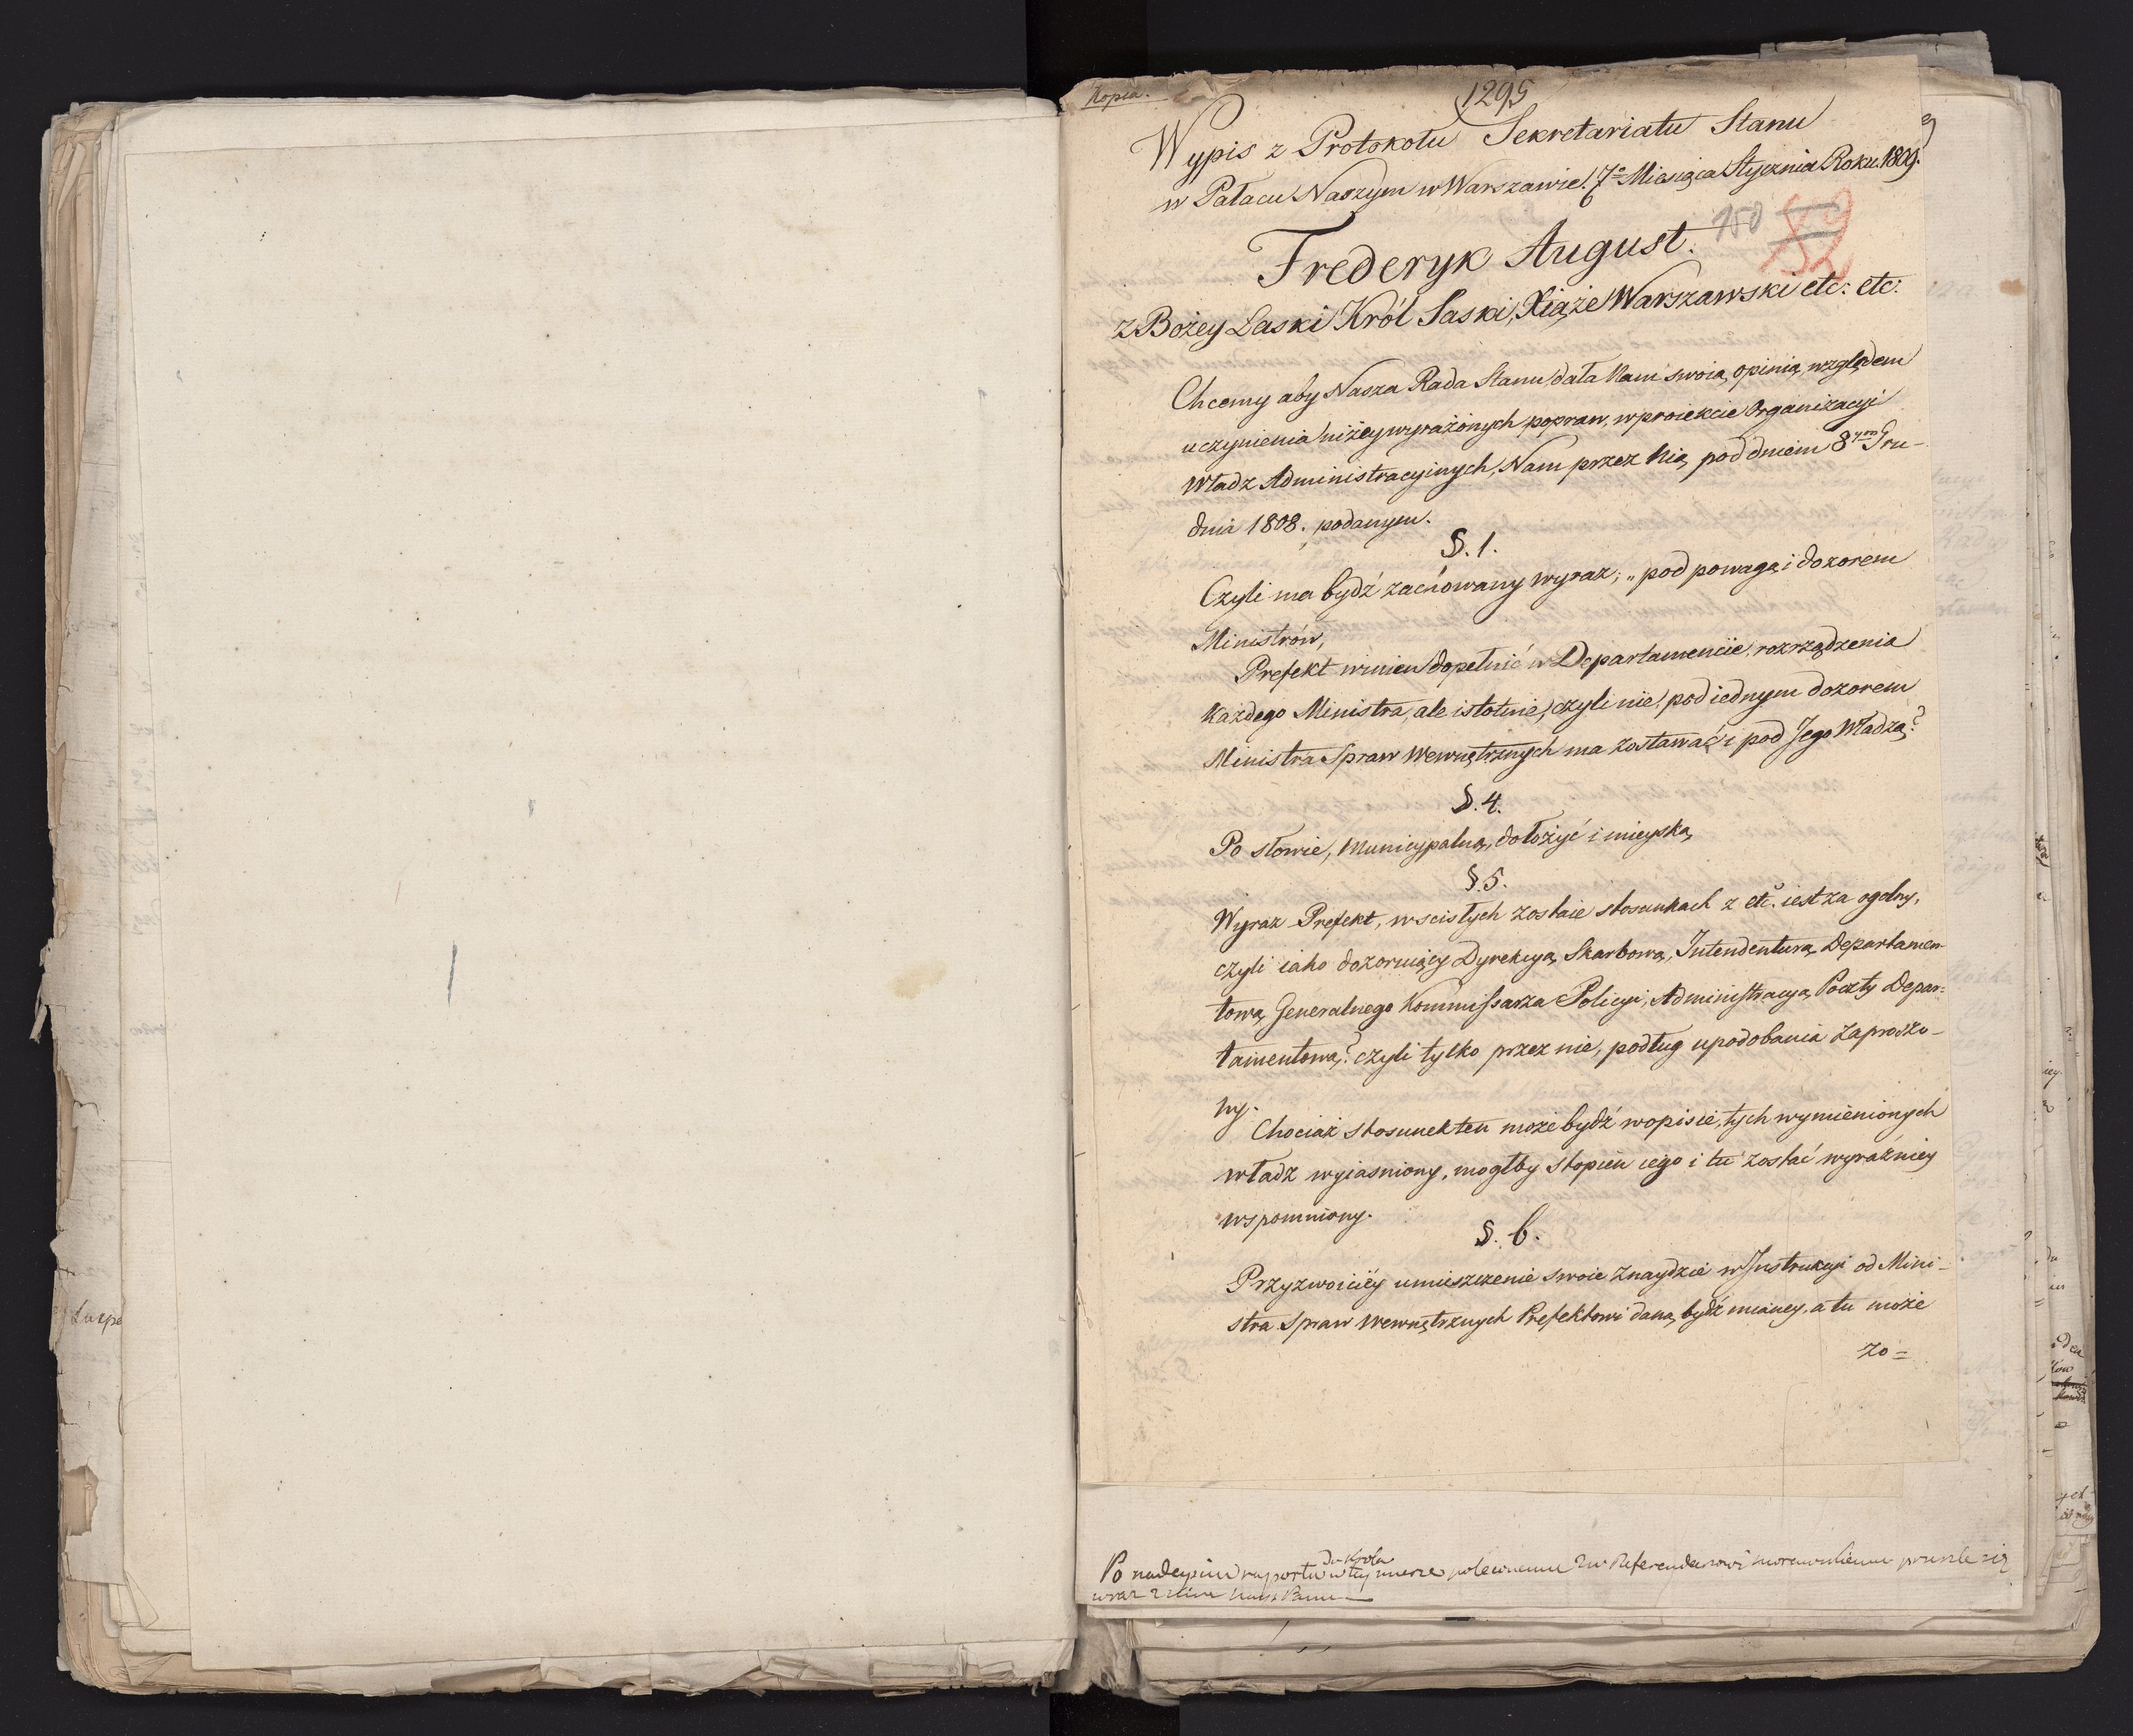 Kopia.
1295
Wypis z Protokołu Sekretariatu Stanu
w Pałacu Naszym w Warszawie. 7º Miesiąca Stycznia Roku 1809.
150
Frederyk August.
z Bożey Łaski Król Saski, Xiąże Warszawski etc: etc:
Chcemy aby Nasza Rada Stanu dała Nam swoią opinią względem
uczynienia niżey wyrażonych popraw, w proiekcie Organizacyi
Władz Administracyinych, Nam przez Nią pod dniem 8ym Gru-
dnia 1808. podanym.
§. 1.
Czyli ma bydź zachowany wyraz; „ pod powagą i dozorem
Ministrów,
Prefekt winien dopełnić w Departamencie, rozrządzenia
każdego Ministra, ale istotnie, czyli nie, pod iednym dozorem
Ministra Spraw Wewnętrznych ma zostawać i pod Jego Władzą?
§. 4.
Po słowie, Municypalną, dołożyć i mieyską,
§. 5.
Wyraz Prefekt, w scisłych zostaie stosunkach z etc. iest za ogolny,
czyli iako dozoruiący Dyrekcyą Skarbową, Intendenturą Departamen-
tową, Generalnego Kommissarza Policyi, Administracyą Poczty Depar-
tamentową? czyli tylko przez nie, podług upodobania zaproszo-
ny.
Chociaż stosunek ten może bydź w opisie, tych wymienionych
władz wyiasniony, mogłby stopień iego i tu zostać wyraźniey
wspomniony.
§. 6.
Przyzwoiciéy umieszczenie swoie znaydzie w Instrukcyi od Mini-
stra Spraw Wewnętrznych Prefektowi daną bydź maiącey, a tu może
zo=
Po nadeyściu rapportu do Króla w tey mierze
wraz z